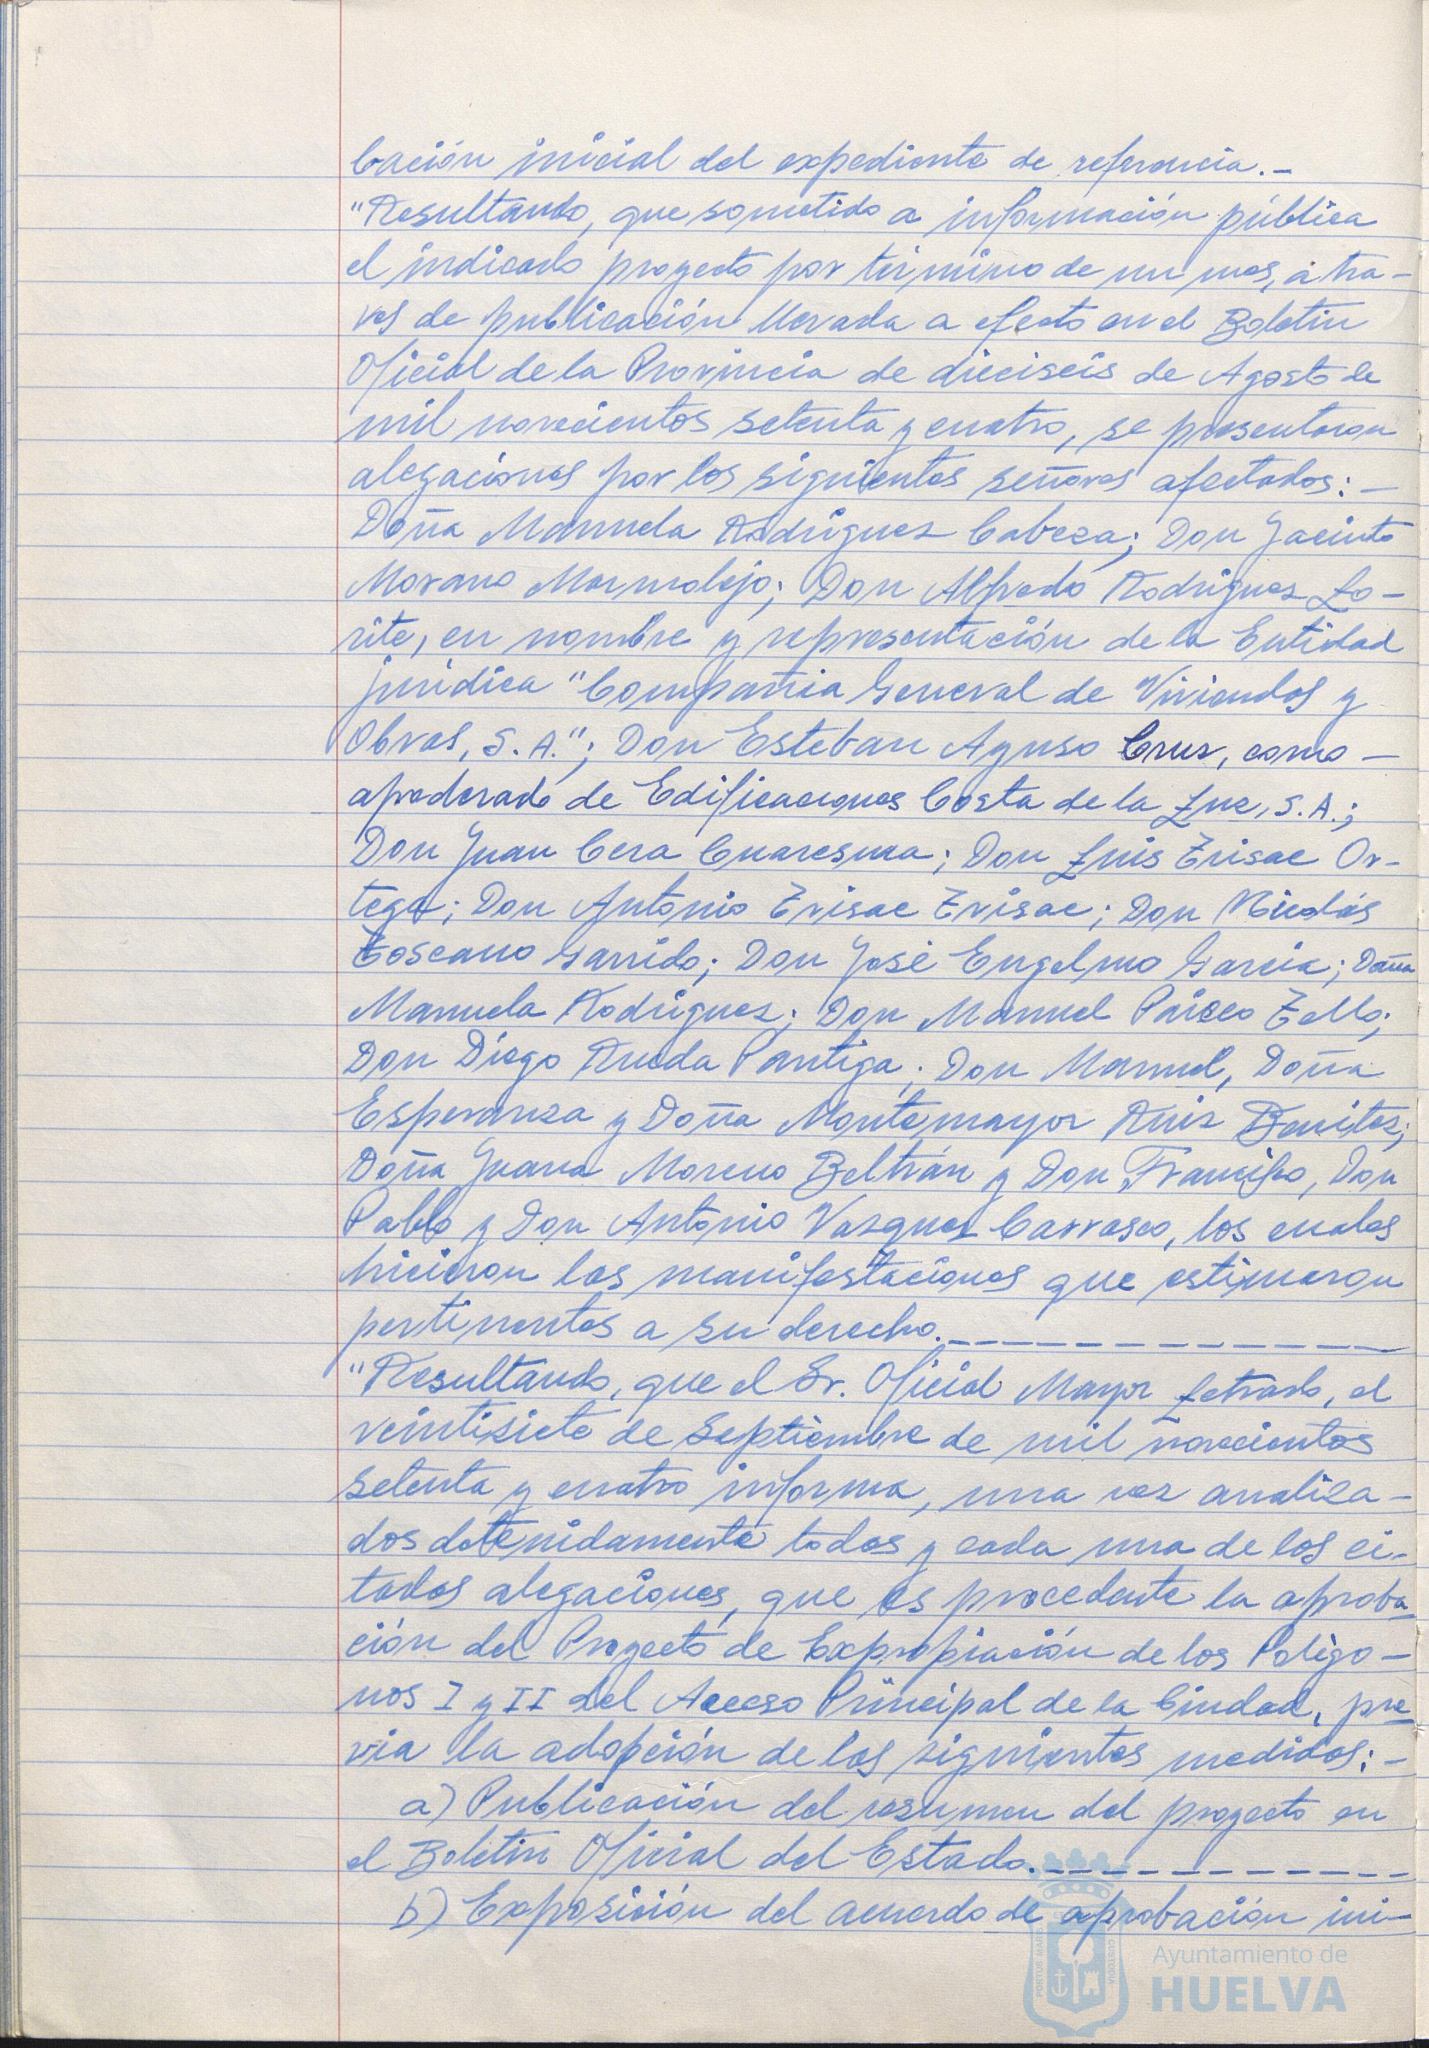 bación inicial del expediente de referencia.-
"Resultando, que sometido a información pública
el indicado proyecto por término de un mes, a tra-
ves de publicación llevada a efecto en el Boletin
Oficial de la Provincia de dieciseis de Agosto de
mil novecientos setenta y cuatro, se presentaron
alegaciones por los siguientes señores afectados:-
Doña Manuela Rodriguez Cabeza; Don Jacinto
Morano Marmolejo; Don Alfredo Rodriguez Lo-
rite, en nombre y representación de la Entidad
jurídica "Compañia General de Viviendas y
Obras, S.A."; Don Esteban Ayuso Cruz, como -
apoderado de Edificaciones Costa de la Luz, S.A.;
Don Juan Cera Cuaresma; Don Luis Trisac Or-
tega; Don Antonio Trisac Trisac; Don Nicolás
Toscano Garrido; Don José Engelmo García; Doña
Manuela Rodriguez; Don Manuel Tello;
Don Diego Rueda Pantiga; Don Manuel, Doña
Esperanza y Doña Montemayor Ruiz Benitez;
Doña Juana Moreno Beltrán y Don Francisco, Don
Pablo y Don Antonio Vazquez Carrasco, los cuales
hicieron las manifestaciones que estimaron
pertinentes a su derecho.
"Resultando, que el Sr. Oficial Mayor Letrado, el
veintisiete de Septiembre de mil novecientos
setenta y cuatro informa, una vez analiza-
dos detenidamente todas y cada una de las ci-
tadas alegaciones, que es procedente la aproba-
ción del Proyecto de Expropiación de los Poligo-
nos I y II del Acceso Principal de la Ciudad, pre-
via la adopción de las siguientes medidas:-
a) Publicación del resumen del proyecto en
el Boletin Oficial del Estado.
b) Exposición del acuerdo de aprobación ini-
PORTUS MARIS
CUSTODIA
Ayuntamiento de
HUELVA